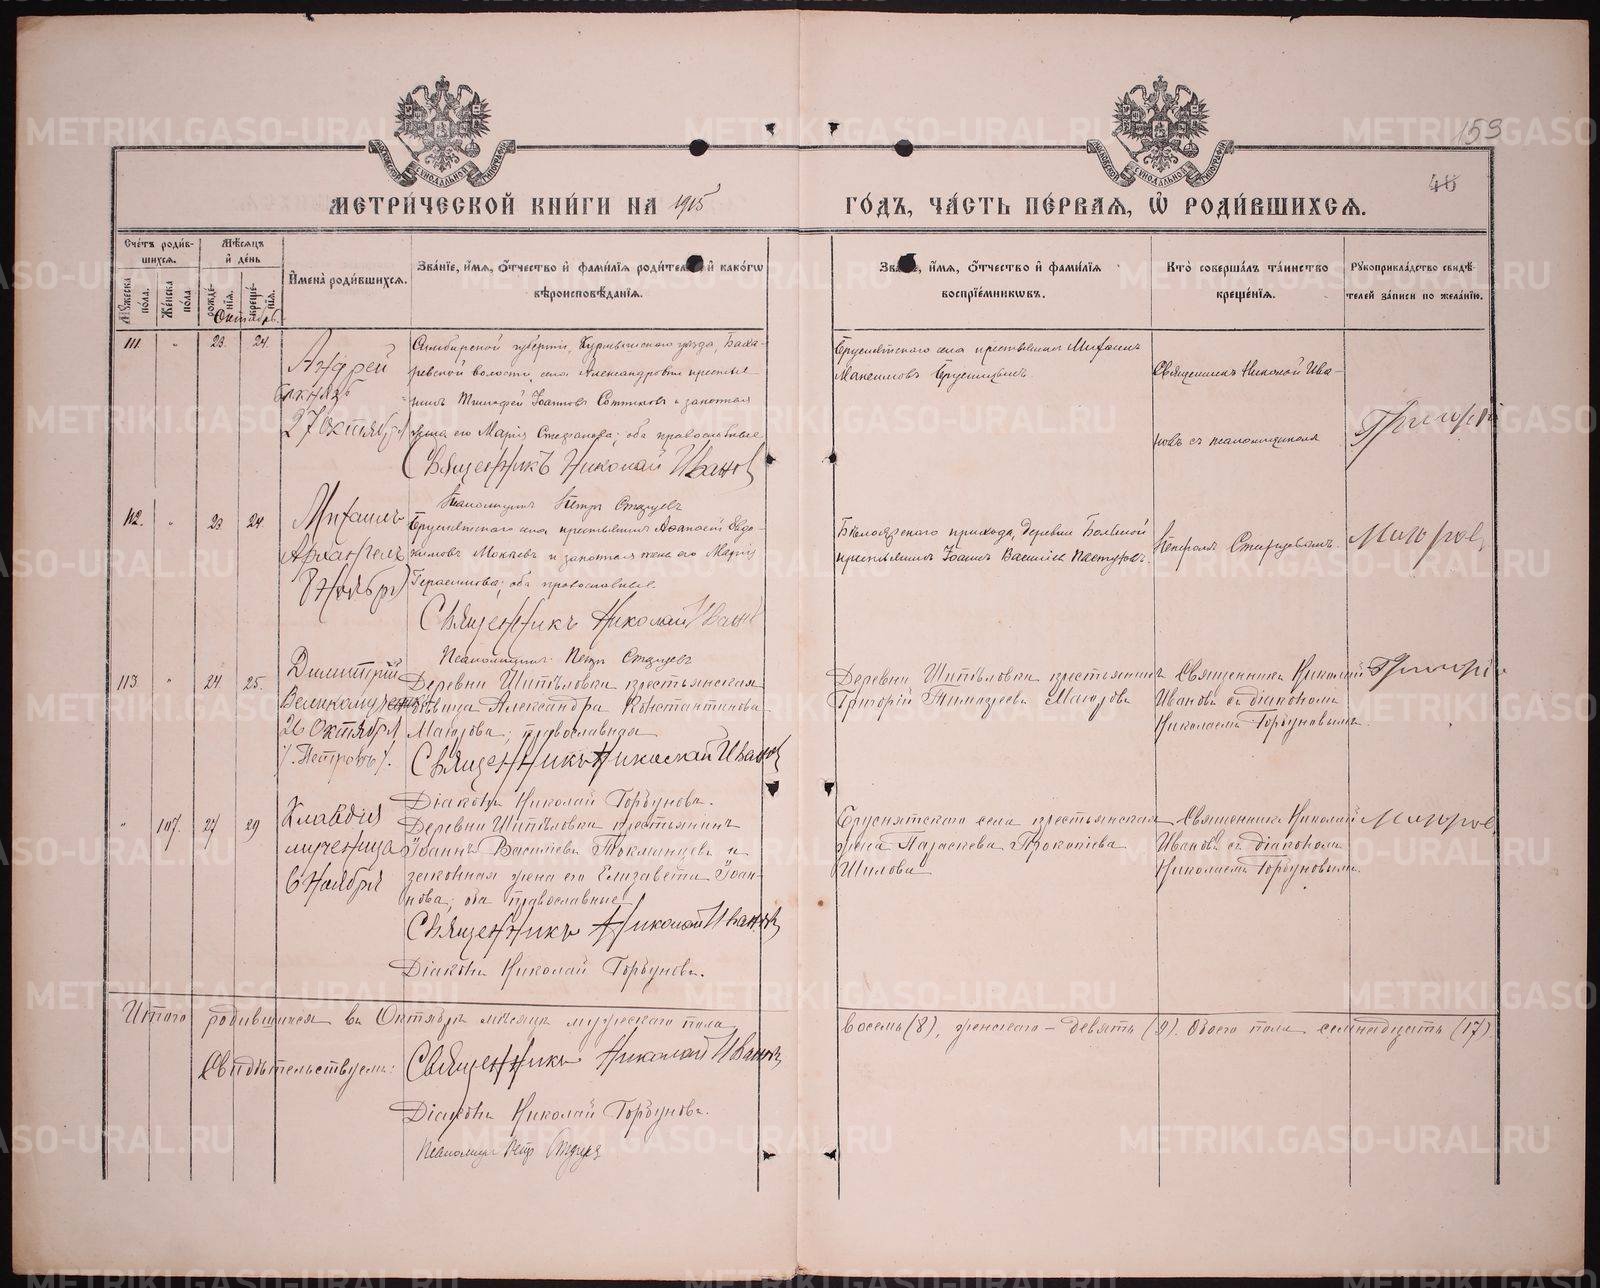 METRIKI.GASO-URAL.RU
159
40
МЕТРИ́ЧЕСКОЙ КНИ́ГИ НА 1915 ГО́ДЪ, ЧА́СТЬ ПЕ́РВАЯ, Ѽ РОДИ́ВШИХСЯ.
Сче́тъ роди́вшихся.
Мѣ́сяцъ и҆ де́нь
Мꙋ́жеска по́ла.
Же́нска по́ла.
рожде́нїя.
креще́нїя.
И҆мена̀ роди́вшихся.
Зва́нїе, и҆́мя, ѻ҆́тчество и҆ фами́лїя роди́телей и҆ како́гѡ вѣроисповѣ́данїя.
Зва́нїе, и҆́мя, ѻ҆́тчество и҆ фами́лїя воспрїе́мникѡвъ.
Кто̀ соверша́лъ та́инство креще́нїя.
Рꙋкоприкла́дство свидѣ́телей за́писи по жела́нїю.
Октябрь
111. " 23. 24.
Андрей
князь
27 октября
Симбирской губерніи, Курмышскаго уѣзда,
волости, села Александровки крестья-
нинъ Тимофей Іоанновъ Сотниковъ и законная
жена его Марія Стефанова; оба православные
Священникъ Николай Ивановъ
Псаломщикъ Петръ
Бруснятскаго села крестьянинъ Михаилъ
Максимовъ Брусницынъ.
Священникъ Николай Ива-
новъ съ псаломщикомъ
Григорій
112. " 23 24.
Михаилъ
Архангелъ
8 Ноября
Бруснятскаго села крестьянинъ Афанасій Евдо-
кимовъ Мокѣевъ и законная жена его Марія
Герасимова; оба православные.
Священникъ Николай Ивановъ
Псаломщикъ Петръ
Бѣлоярскаго прихода, деревни
крестьянинъ Іоаннъ Васильевъ Пастуховъ.
Петромъ
113 " 24. 25.
Димитрій
Великомученикъ
26 Октября
/.Петровъ/.
Деревни Шипѣловки крестьянская
дѣвица Александра Константинова
Мазурова; православная
Священникъ Николай Ивановъ
Діаконъ Николай Горбуновъ.
Деревни Шипѣловки крестьянинъ
Григорій Тимофеевъ Мазуровъ
Священникъ Николай
Ивановъ съ діакономъ
Николаемъ Горбуновымъ.
Григорій
" 107. 27 29
Клавдія
мученица
6 Ноября
Деревни Шипѣловки крестьянинъ
Іоаннъ Васильевъ Токманцевъ и
законная жена его Елизавета Іоан-
нова; оба православные
Священникъ Николай Ивановъ
Діаконъ Николай Горбуновъ.
Бруснятскаго села крестьянская
жена Параскева Прокопіева
Шилова
Священникъ Николай
Ивановъ съ діакономъ
Николаемъ Горбуновымъ.
Мазуров
Итого родившихся въ Октябрѣ мѣсяцѣ мужескаго пола восемь (8), женскаго – девять (9). Обоего пола семнадцать (17).
Свидѣтельствуемъ: Священникъ Николай Ивановъ
Діаконъ Николай Горбуновъ.
Псаломщикъ Петръ